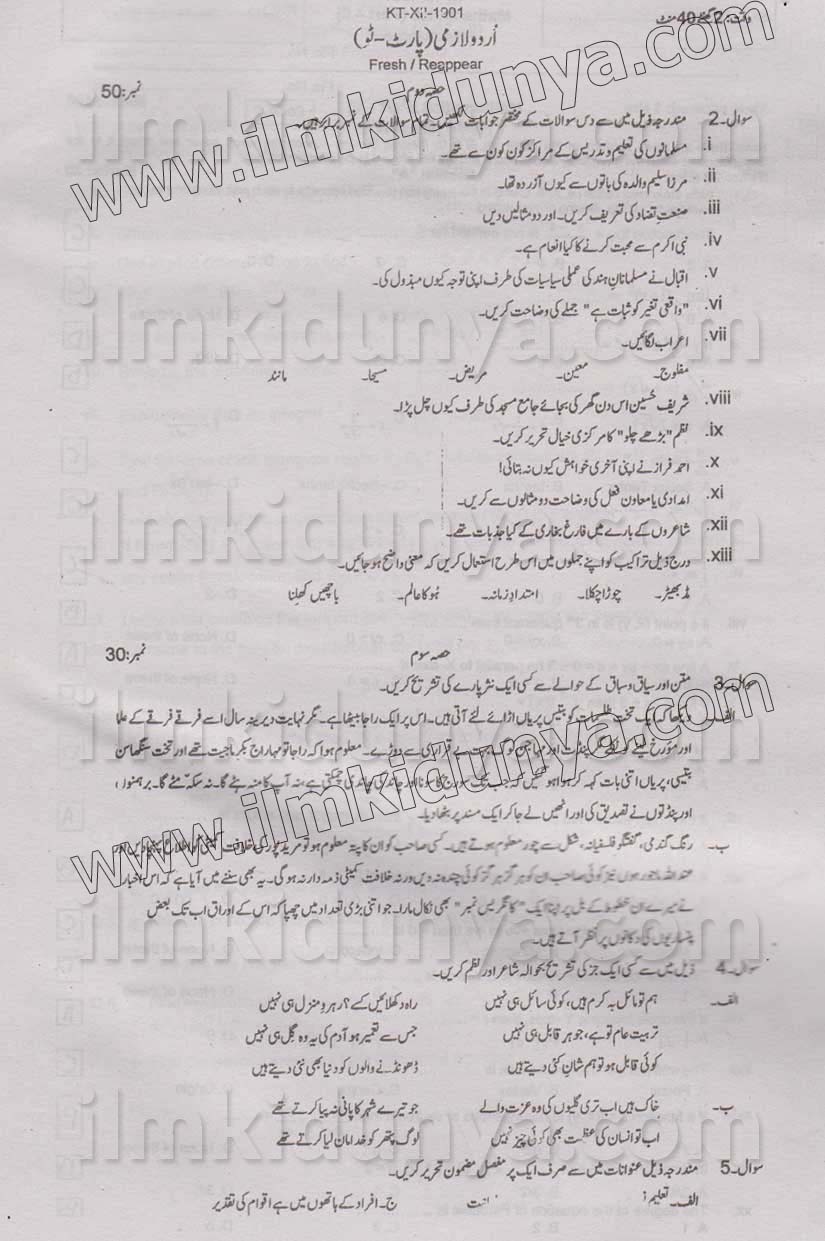 KT-XII-1901
وقت: 2 گھنٹے 40 منٹ
اُردو لازمی (پارٹ - ٹو)
Fresh / Reappear
حصہ دوم
نمبر: 50
سوال۔2 مندرجہ ذیل میں سے دس سوالات کے مختصر جوابات لکھیں۔ تمام سوالات کے نمبر برابر ہیں۔
i. مسلمانوں کی تعلیم و تدریس کے مراکز کون کون سے تھے۔
ii. مرزا سلیم والدہ کی باتوں سے کیوں آزردہ تھا۔
iii. صنعتِ تضاد کی تعریف کریں۔ اور دو مثالیں دیں
iv. نبی اکرم سے محبت کرنے کا کیا انعام ہے۔
v. اقبال نے مسلمانانِ ہند کی عملی سیاسیات کی طرف اپنی توجہ کیوں مبذول کی۔
vi. "واقعی تغیر کو ثبات ہے" جملے کی وضاحت کریں۔
vii. اعراب لگائیں۔
مفلوج۔ معین۔ مریض۔ مسیحا۔ مانند
viii. شریف حسین اس دن گھر کی بجائے جامع مسجد کی طرف کیوں چل پڑا۔
ix. نظم "بڑھے چلو" کا مرکزی خیال تحریر کریں۔
x. احمد فراز نے اپنی آخری خواہش کیوں نہ بتائی!
xi. امدادی یا معاون فعل کی وضاحت دو مثالوں سے کریں۔
xii. شاعروں کے بارے میں فارغ بخاری کے کیا جذبات تھے۔
xiii. درج ذیل تراکیب کو اپنے جملوں میں اس طرح استعمال کریں کہ معنی واضح ہو جائیں۔
مڈبھیڑ۔ چوڑا چکلا۔ امتدادِ زمانہ۔ ہُو کا عالم۔ باچھیں کھلنا
حصہ سوم
نمبر: 30
سوال۔3 متن اور سیاق و سباق کے حوالے سے کسی ایک نثر پارے کی تشریح کریں۔
الف۔ دیکھا کہ ایک تخت طلسمات کو بتیس پریاں اڑائے لئے آتی ہیں۔ اس پر ایک راجا بیٹھا ہے۔ مگر نہایت دیرینہ سال اسے فرقے فرقے کے علما
اور مؤرخ لینے کو نکلے مگر پنڈت اور مہاجن لوگ بہت بے قراری سے دوڑے۔ معلوم ہوا کہ راجا تو مہاراج بکرماجیت تھے اور تخت سنگھاسن
بتیسی، پریاں اتنی بات کہہ کر ہوا ہو گئیں کہ جب تک سورج کا سونا اور چاند کی چاندی چمکتی ہے، نہ آپ کا سنہ ہٹے گا۔ نہ سکہ مٹے گا۔ برہمنوں
اور پنڈتوں نے تصدیق کی اور انھیں لے جا کر ایک مسند پر بٹھا دیا۔
ب۔ رنگ گندمی، گفتگو فلسفیانہ، شکل سے چور معلوم ہوتے ہیں۔ کسی صاحب کو ان کا پتہ معلوم ہو تو مرید پور کی خلافت کمیٹی کو اطلاع پہنچا دیں اور
عند اللہ ماجور ہوں نیز کوئی صاحب ان کو ہرگز ہرگز کوئی چندہ نہ دیں ورنہ خلافت کمیٹی ذمہ دار نہ ہوگی۔ یہ بھی سننے میں آیا ہے کہ اس اخبار
نے میرے ان خطوط کے بل پر اپنا ایک "کانگریس نمبر" بھی نکال مارا۔ جو اتنی بڑی تعداد میں چھپا کہ اس کے اوراق اب تک بعض
پنساریوں کی دکانوں پر نظر آتے ہیں۔
سوال۔4 ذیل میں سے کسی ایک جز کی تشریح بحوالہ شاعر اور نظم کریں۔
الف۔ ہم تو مائل بہ کرم ہیں، کوئی سائل ہی نہیں راہ دکھلائیں کسے؟ رہرو منزل ہی نہیں
تربیت عام تو ہے، جوہر قابل ہی نہیں جس سے تعمیر ہو آدم کی یہ وہ گِل ہی نہیں
کوئی قابل ہو تو ہم شانِ کئی دیتے ہیں ڈھونڈنے والوں کو دنیا بھی نئی دیتے ہیں
ب۔ خاک ہیں اب تری گلیوں کی وہ عزت والے جو تیرے شہر کا پانی نہ پیا کرتے تھے
اب تو انسان کی عظمت بھی کوئی چیز نہیں لوگ پتھر کو خدا مان لیا کرتے تھے
سوال۔5 مندرجہ ذیل عنوانات میں سے صرف ایک پر مفصل مضمون تحریر کریں۔
الف۔ تعلیم ج۔ افراد کے ہاتھوں میں ہے اقوام کی تقدیر
www.ilmkidunya.com
ilmkidunya.com
ilmkidunya.com
ilmkidunya.com
ilmkidunya.com
www.ilmkidunya.com
ilmkidunya.com
ilmkidunya.com